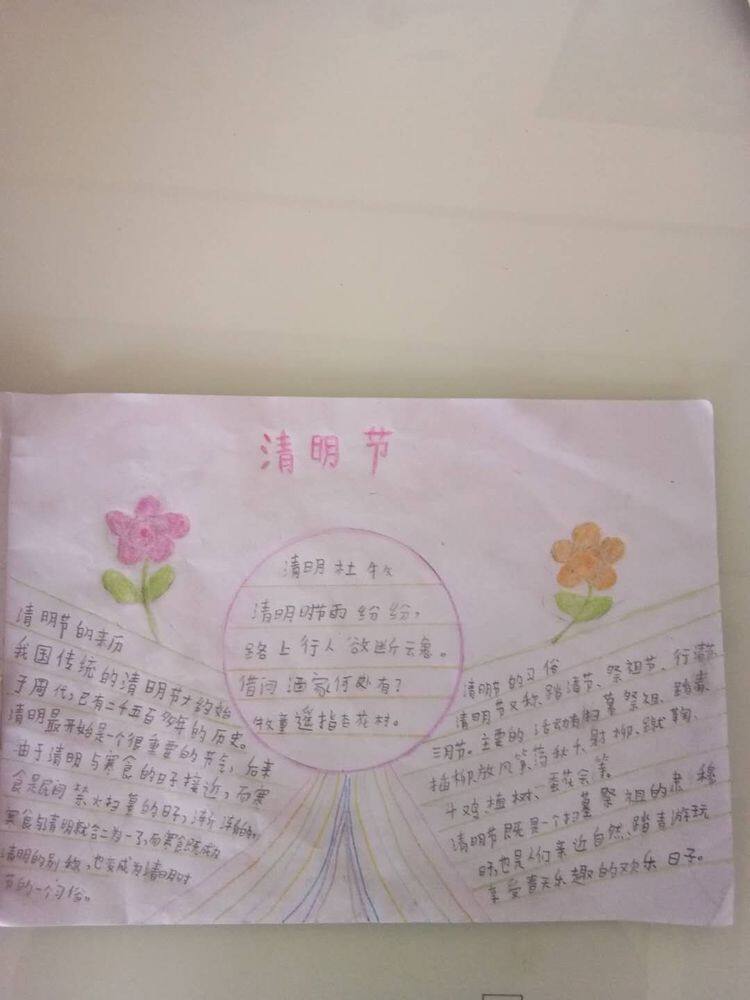 清明节
清明 杜 牧
清明时节雨纷纷,
路上行人欲断魂。
借问酒家何处有?
牧童遥指杏花村。
清明节的来历
我国传统的清明节大约始
于周代,已有二千五百多年的历史。
清明最开始是一个很重要的节气,后来
由于清明与寒食的日子接近,而寒
食是民间禁火扫墓的日子,渐渐的,
寒食与清明就合二为一了,而寒食既成为
清明的别称,也变成为清明时
节的一个习俗。
清明节的习俗
清明节又称踏清节、祭祖节、行清节
三月节。主要的活动有扫墓祭祖、踏青、
插柳放风筝荡秋大射柳、蹴鞠、
斗鸡植树、蚕花会等
清明节既是一个扫墓祭祖的肃穆
日,也是人们亲近自然、踏青游玩
享受春天乐趣的欢乐日子。